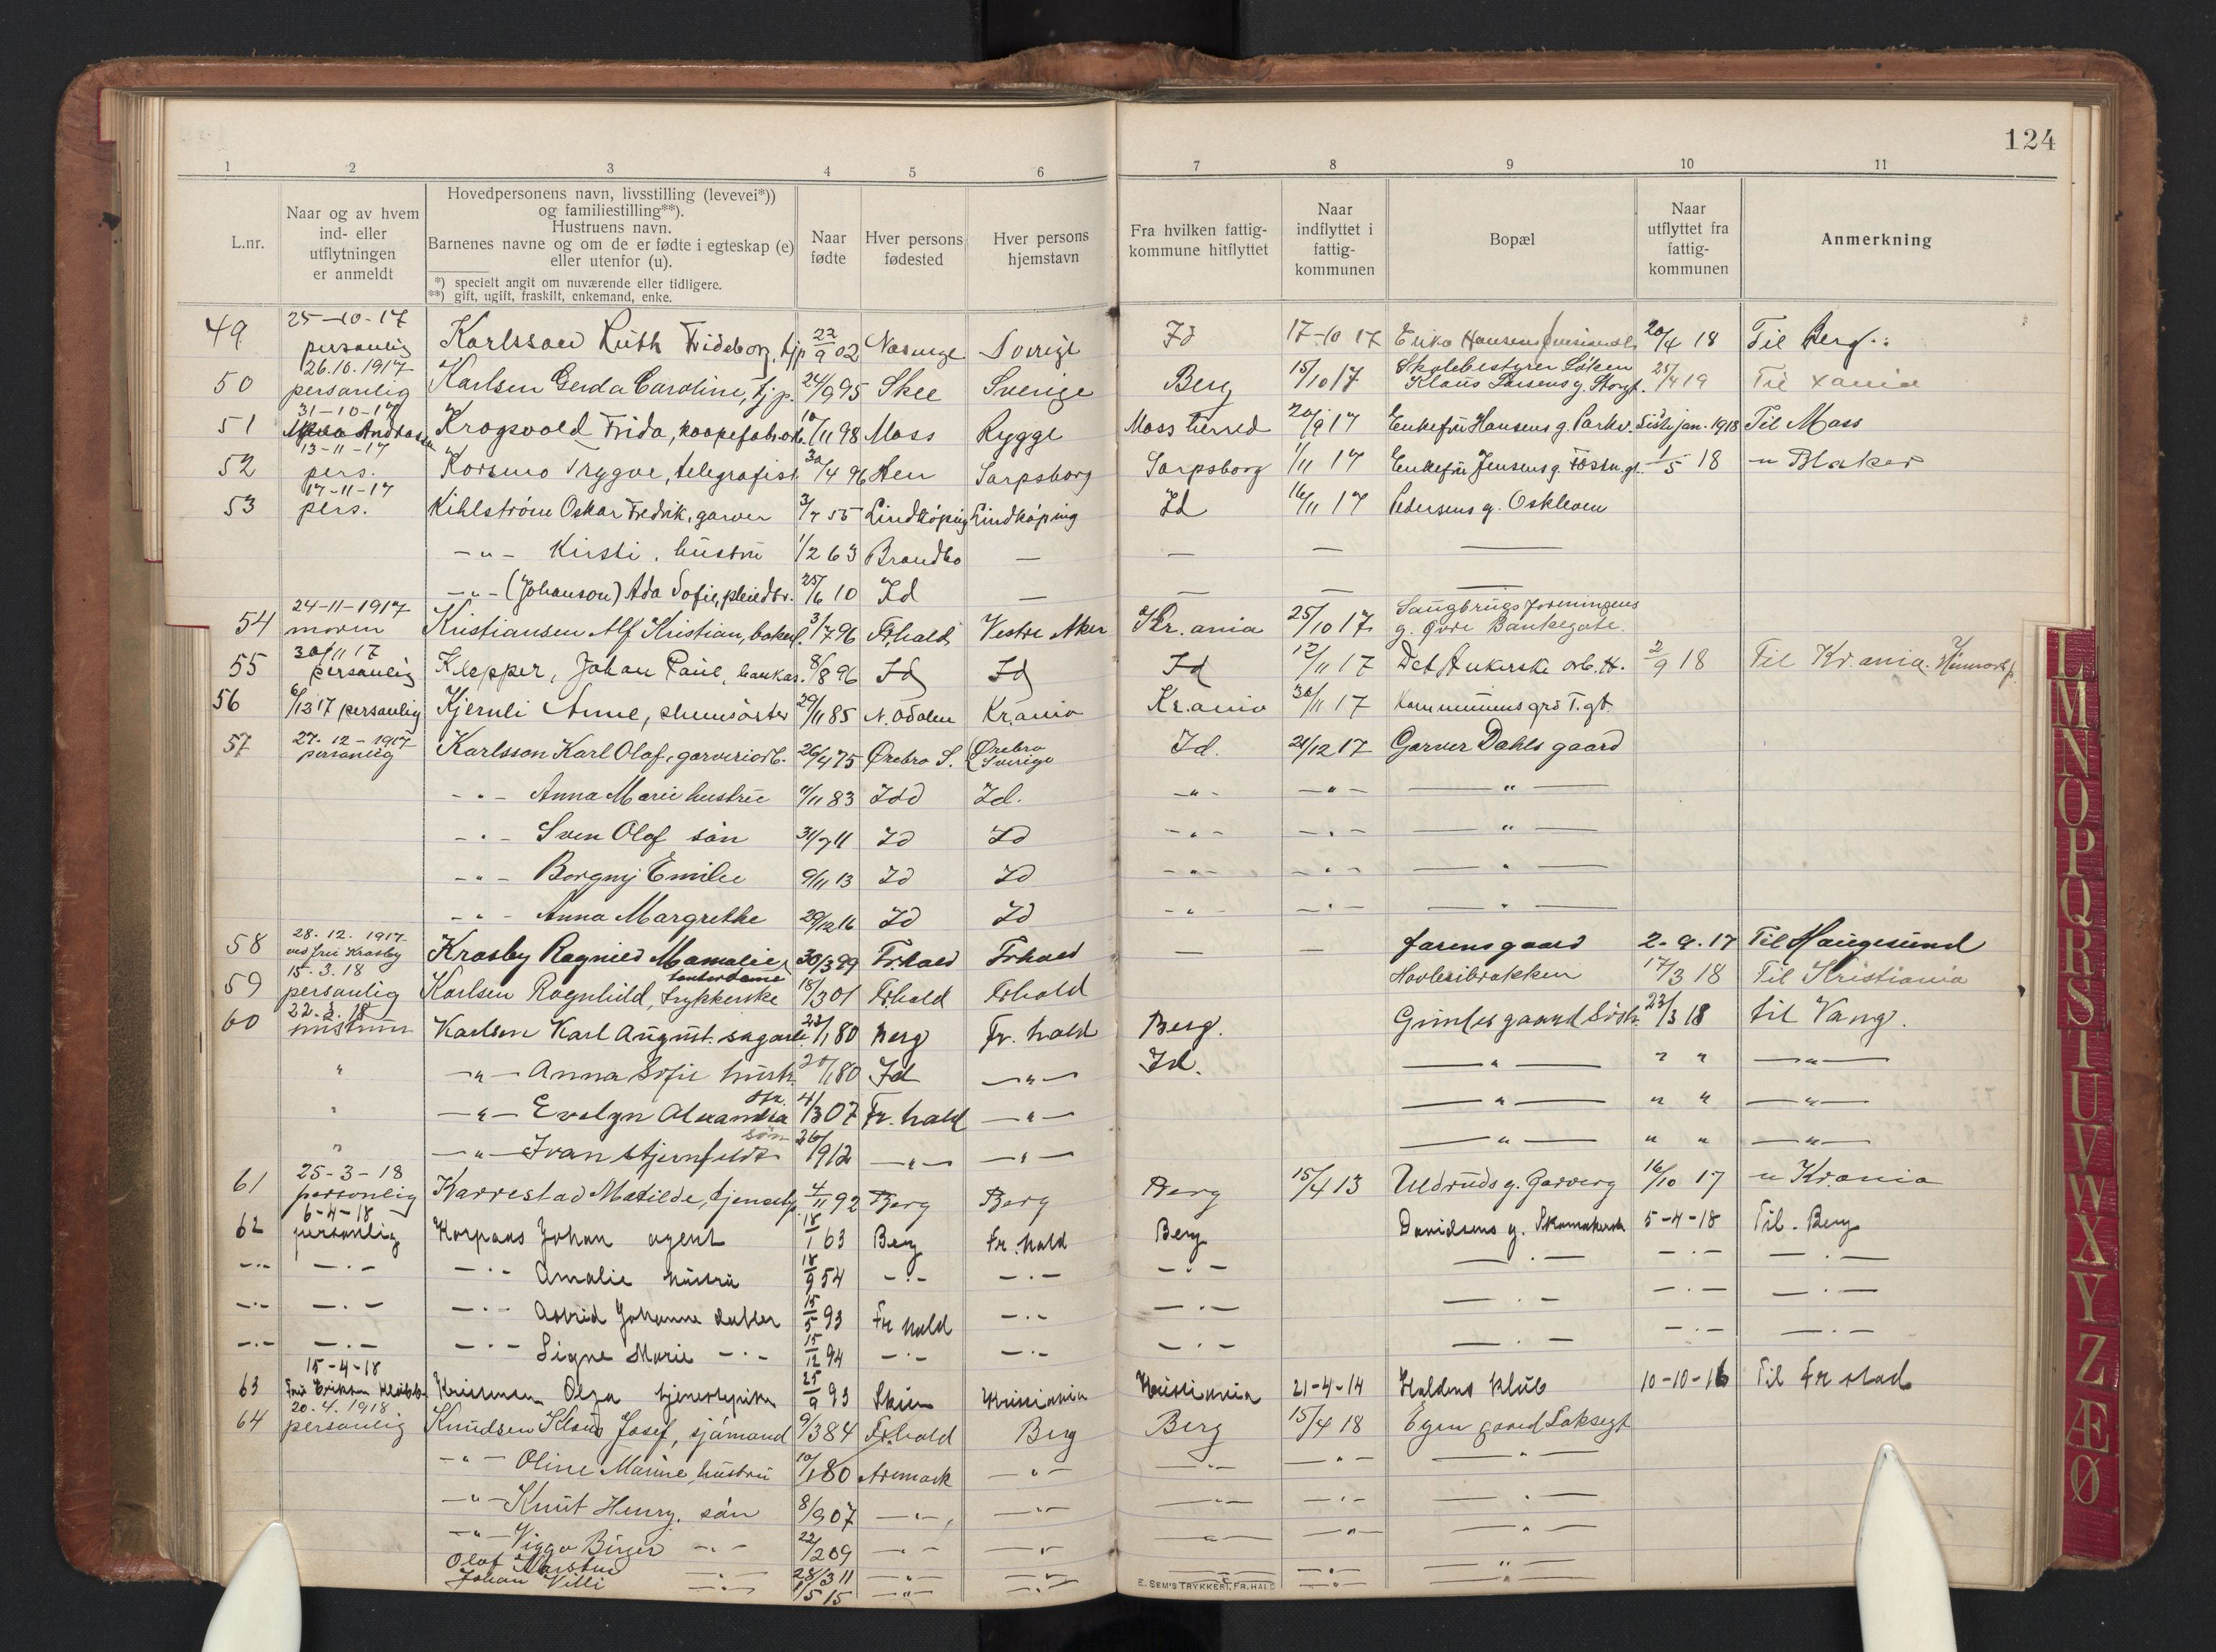 124
1 2 3 4 5 6 7 8 9 10 11
L.nr.
Naar og av hvem
ind- eller
utflytningen
er anmeldt
Hovedpersonens navn, livsstilling (levevei*))
og familiestilling**).
Hustruens navn.
Barnenes navne og om de er fødte i egteskap (e)
eller utenfor (u).
*) specielt angit om nuværende eller tidligere.
**) gift, ugift, fraskilt, enkemand, enke.
Naar
fødte
Hver persons
fødested
Hver persons
hjemstavn
Fra hvilken fattig-
kommune hitflyttet
Naar
indflyttet i
fattig-
kommunen
Bopæl
Naar
utflyttet fra
fattig-
kommunen
Anmerkning
25-10-17
49 personlig Karlsson Ruth Frideborg, tjp 22/9 02 Sverige Id 17-10 17 Erika Hansens 20/4 18 Til Berg
26.10.1917 Skolebestyrer Löken
50 personlig Karlsen Gerda Caroline, tjp. 24/9 95 Skee Sverige Berg 15/10 17 Klaus Larsens g. Storgt. 25/4 19 Til Xania
31-10-17
51 Andrassen Krogsvold Frida, 10/11 98 Moss Rygge Moss herred 20/9 17 Enkefru Hansens g. Parkv. Sidst i jan. 1918 Til Moss
13-11-17
52 pers. Korsmo Trygve, telegrafist 30/4 96 Hen Sarpsborg Sarpsborg 1/11 17 Enkefru Jensens g. 1/5 18 " Blaker
17-11-17
53 pers. Kihlström Oskar Fredrik, garver 3/7 55 Lindköping Lindköping Id 16/11 17 Pedersens g. Oskleven
-"- Kirsti, hustru 1/2 63 Brandbo — — — —
-"- (Johanson) Ada Sofie, pleiedtr. 25/6 10 Id — — — —
24-11-1917 Saugbrugsforeningens
54 moren Kristiansen Alf Kristian, 3/7 96 Frhald Vestre Aker Kr.ania 25/10 17 g. övre Bankegate.
30/11 17
55 personlig Klepper, Johan Paul, bankas. 8/8 96 Id Id Id 12/11 17 Det Ankerske 2/9 18 Til Kr.ania
56 6/12 17 personlig Kjernli Anne, 29/11 85 N. Odalen Kr.ania Kr.ania 30/11 17 Kommunens
27-12-1917
57 personlig Karlsson Karl Olof, garveriarb. 26/4 75 Ørebro S. Ørebro Sverige Id. 21/12 17 Garver Dahls gaard
-"- Anna Marie hustru /11 83 Idd Id. -"- -"- —"—
-"- Sven Olof sön 31/7 11 Id Id -"- -"- —"—
-"- Borgny Emilie 9/11 13 Id Id -"- -"- —"—
-"- Anna Margrethe 29/12 16 Id Id -"- -"- —"—
28.12.1917
58 ved fru Krosby Krosby Ragnild Mamalie 30/3 99 Fr.hald Frhald — — gaard 2-9-17 Til Haugesund
15.3.18
59 personlig Karlsen Ragnhild, 18/3 01 Frhald Frhald 17/3 18 Til Kristiania
22.3.18
60 hustrun Karlsen Karl August. 23/1 80 Berg Fr. hald Berg. 23/3 18 til Vang.
" -"- Anna Sofie hustr. 20/1 80 Id -"- Id. —"— " " —"—
" -"- Evelyn Alexandra dtr. 4/3 07 Fr. hald -"- —"— " " —"—
" -"- Ivan Stjernfeldt sön 26/9 12 -"- -"- —"— " " —"—
25-3-18
61 personlig Karrestad Matilde, 4/11 92 Berg Berg Berg 15/4 13 16/10 17 " Kr.ania
6-4-18
62 personlig Korpaas Johan agent 18/1 63 Berg Fr. hald Berg Davidsens g. 5-4-18 Til. Berg
-"- -"- -"- Amalie hustru 18/9 54 -"- -"- -"- —"— -"- -"-
-"- -"- -"- Astrid Johanne datter 15/5 93 Fr hald -"- -"- —"— -"- -"-
-"- -"- -"- Signe Marie -"- 15/12 94 -"- -"- -"- —"— -"- -"-
15-4-18
63 Fru Eriksen Klubb. Olga tjenestepike 25/9 93 Skien Kristiania Kristiania 21-4-14 Haldens Klub 10-10-16 Til Fr stad
20.4.1918
64 personlig Knudsen Klaus Josef, sjömand 9/3 84 Fr.hald Berg Berg 15/4 18 Egen gaard
-"- Oline Marine, hustru 10/1 80 Aremark -"- -"- -"- —"—
-"- Knut Henry, sön 8/9 07 -"- -"- -"- -"- —"—
-"- Viggo Birger -"- 22/2 09 -"- -"- -"- -"- —"—
Olaf -"- 28/3 11 -"- -"- -"- -"- —"—
Johan Villi -"- 1/5 15 -"- -"- -"- -"- —"—
E. SEM'S TRYKKERI, FR.HALD
L
M
N
O
P
Q
R
S
T
U
V
W
X
Y
Z
Æ
Ø